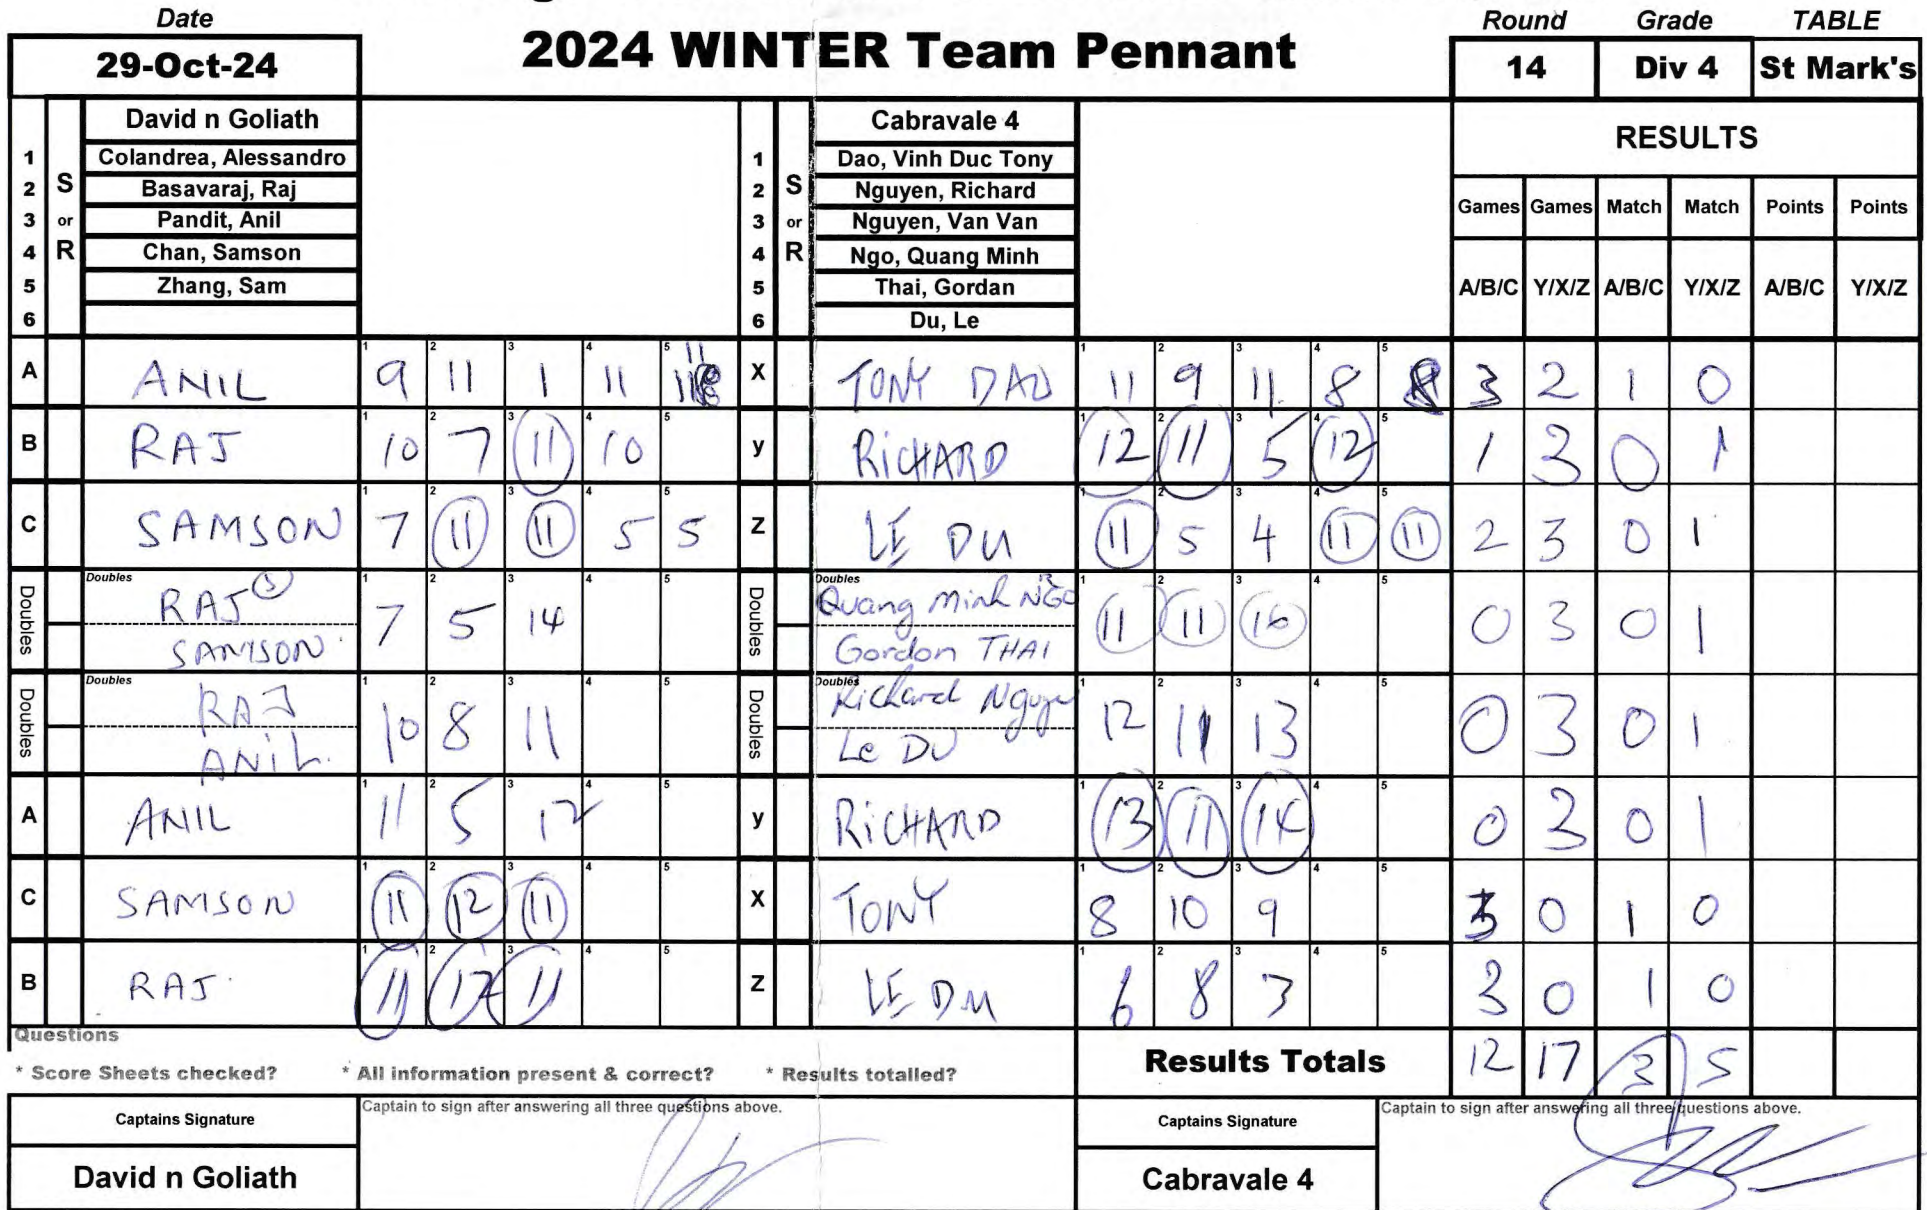 Date
29-Oct-24
2024 WINTER Team Pennant
Round Grade TABLE
14 Div 4 St Mark's
David n Goliath
1 Colandrea, Alessandro
2 Basavaraj, Raj
3 Pandit, Anil
4 Chan, Samson
5 Zhang, Sam
6
S or R
Cabravale 4
1 Dao, Vinh Duc Tony
2 Nguyen, Richard
3 Nguyen, Van Van
4 Ngo, Quang Minh
5 Thai, Gordan
6 Du, Le
S or R
RESULTS
Games Games Match Match Points Points
A/B/C Y/X/Z A/B/C Y/X/Z A/B/C Y/X/Z
A ANIL 9 11 1 11 11 X TONY DAO 11 9 11 8 8 3 2 1 0
B RAJ 10 7 11 10 y RICHARD 12 11 5 12 1 3 0 1
C SAMSON 7 11 11 5 5 Z LE DU 11 5 4 11 11 2 3 0 1
Doubles Doubles RAJ SAMSON 7 5 14 Doubles Doubles Quang Minh NGO Gordon THAI 11 11 16 0 3 0 1
Doubles Doubles RAJ ANIL. 10 8 11 Doubles Doubles Richard Nguye Le DU 12 11 13 0 3 0 1
A ANIL 11 5 12 y RICHARD 13 11 14 0 3 0 1
C SAMSON 11 12 11 X TONY 8 10 9 3 0 1 0
B RAJ 11 12 11 Z LE DU 6 8 3 3 0 1 0
Questions
* Score Sheets checked? * All information present & correct? * Results totalled?
Results Totals 12 17 3 5
Captains Signature Captain to sign after answering all three questions above.
David n Goliath
Captains Signature Captain to sign after answering all three questions above.
Cabravale 4